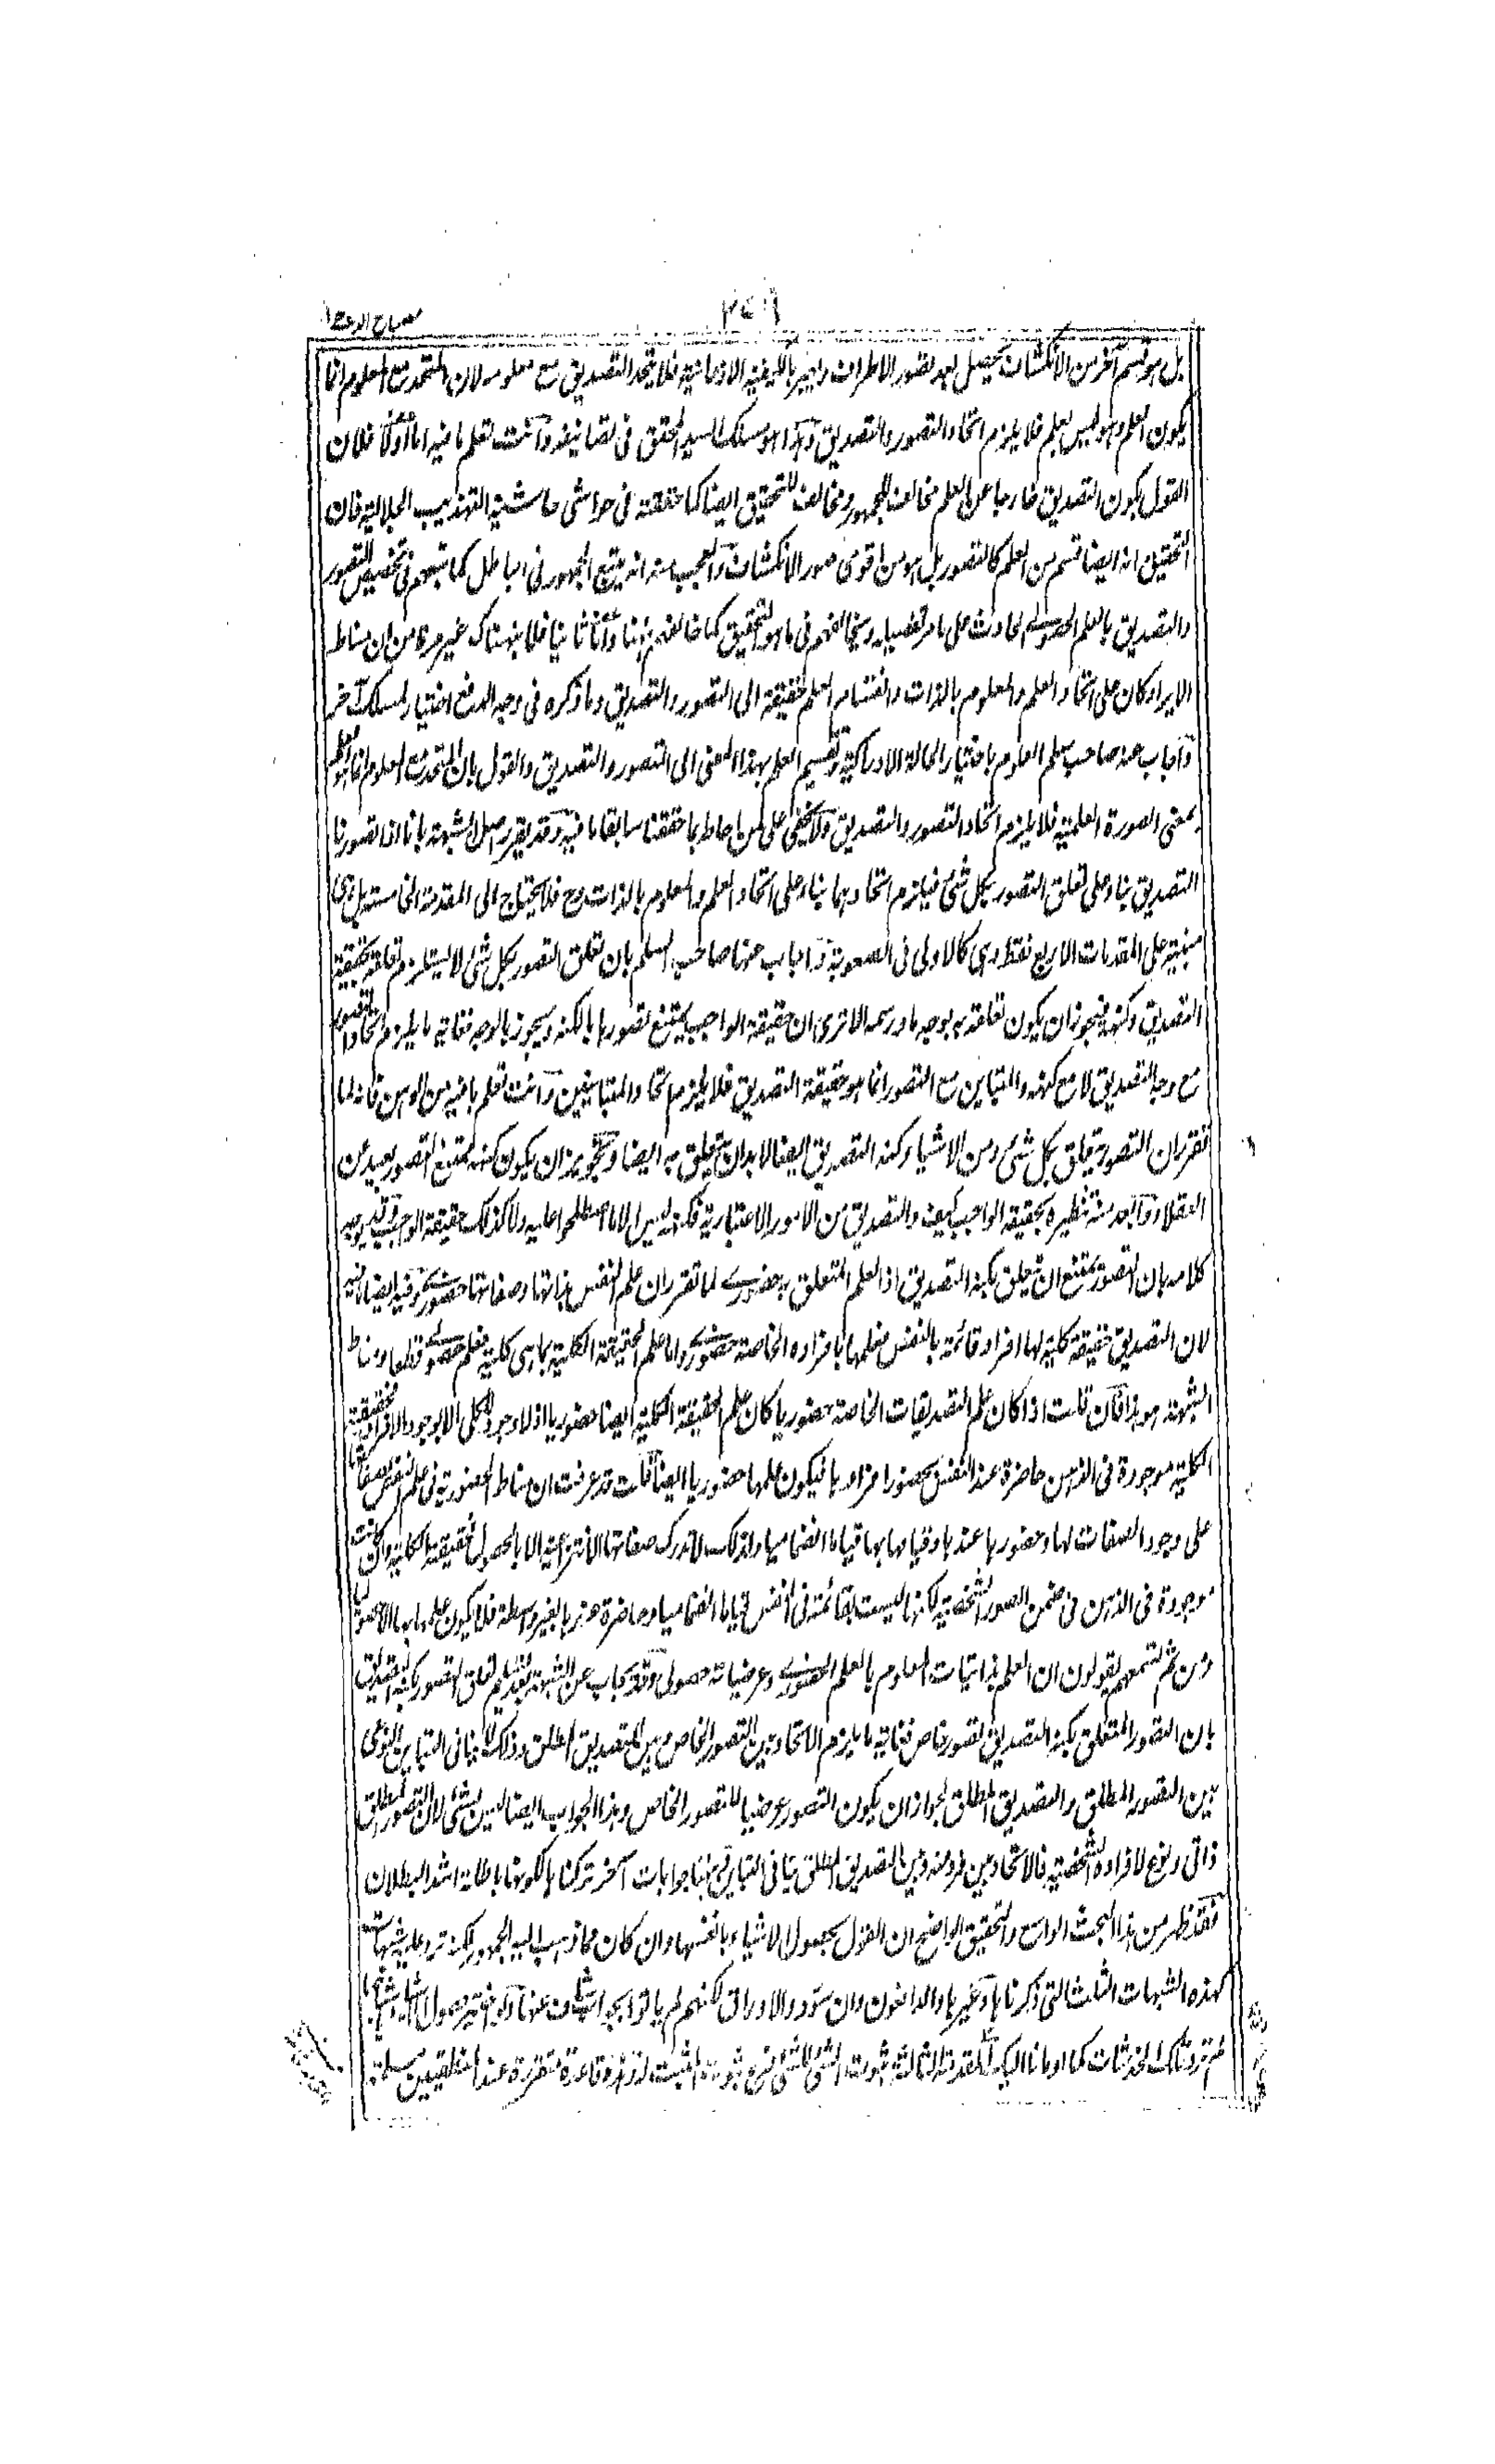 مصباح الدجى
بل هو قسم آخر من الانكشاف يحصل بعد تصور الاطراف ويعبر بالكيفية الاذعانية فلا يتحد التصديق مع معلومه لان المتحد مع المعلوم انما
يكون العلم وهو ليس بعلم فلا يلزم اتحاد التصور والتصديق وهذا هو مسلك السيد المحقق فى تصانيفه وانت تعلم ما فيه اما اولا فلان
القول بكون التصديق خارجا عن العلم مخالف للجمهور ومخالف للتحقيق ايضا كما حققته فى حواشى حاشية التهذيب الجلالية فان
التحقيق انه ايضا قسم من العلم كالتصور بل هو من اقوى صور الانكشاف والعجب منه انه يتبع الجمهور فى اباطل كما تبعهم فى تخصيص التصور
والتصديق بالعلم الحصولى الحادث على ما مر تفصيله ويخالفهم فى ما هو التحقيق كما خالفهم ههنا واما ثانيا فلما نبهناك غير مرة من ان مناط
الايراد كان على اتحاد العلم والمعلوم بالذات وانقسام العلم حقيقة الى التصور والتصديق وما ذكره فى وجه الدفع اختيار لمسلك آخر
واجاب عنه صاحب سلم العلوم باختيار الحالة الادراكية وتقسيم العلم بهذا المعنى الى التصور والتصديق والقول بان المتحد مع المعلوم انما هو العلم
بمعنى الصورة العلمية فلا يلزم اتحاد التصور والتصديق ولا يخفى على من احاط بما حققنا سابقا ما فيه وقد يقرر اصل الشبهة بانا اذا تصورنا
التصديق بناء على تعلق التصور بكل شئ فيلزم اتحادهما بناء على اتحاد العلم والمعلوم بالذات وح فلا يحتاج الى المقدمة الخامسة بل هى
مبنية على المقدمات الاربع فقط وهى كالاولى فى الصعوبة واجاب عنها صاحب السلم بان تعلق التصور بكل شئ لا يستلزم تعلقه بحقيقة
التصديق وكنهه فيجوز ان يكون تعلقه به بوجهه او رسمه الا ترى ان حقيقة الواجب يمتنع تصورها بالكنه ويجوز بالوجه فغاية ما يلزم اتحاد التصور
مع وجه التصديق لا مع كنهه والمتباين مع التصور انما هو حقيقة التصديق فلا يلزم اتحاد المتباينين وانت تعلم ما فيه من الوهن فانه لما
تقرر ان التصور يتعلق بكل شئ ومن الاشياء كنه التصديق ايضا لا بد ان يتعلق به ايضا وتجويز ان يكون كنهه ممتنع التصور بعيد عن
العقلاء وابعد منه تنظيره بحقيقة الواجب كيف والتصديق من الامور الاعتبارية فكنهه ليس الا ما اصطلحوا عليه ولا كذلك حقيقة الواجب وقد يوجه
كلامه بان التصور يمتنع ان يتعلق بكنه التصديق اذ العلم المتعلق به حضورى لما تقرر ان علم النفس بذاتها وصفاتها حضورى وفيه ايضا ما فيه
لان التصديق حقيقة كلية لها افراد قائمة بالنفس فعلمها بافراده الخاصة حضورى واما علم الحقيقة الكلية بما هى كلية فعلم حصولى قطعا ومناط
الشبهة هو هذا فان قلت اذا كان علم التصديقات الخاصة حضوريا كان علم الحقيقة الكلية ايضا حضوريا اذ لا وجود للكلى الا بوجود الافراد فحقيقته
الكلية موجودة فى الذهن حاضرة عند النفس بحضور افرادها فيكون علمها حضوريا ايضا قلت قد عرفت ان مناط الحضورية فى علم النفس بصفاتها
على وجود الصفات لها وحضورها عندها وقيامها بها قياما انضماميا ولذلك لا تدرك صفاتها الانتزاعية الا بالحصول فحقيقة الكلية وان كانت
موجودة فى الذهن فى ضمن الصور الشخصية لكنها ليست بقائمة فى النفس قياما انضماميا وحاضرة عندها بغير واسطة فلا يكون علمها بها الا حصوليا
ومن ثم تسمعهم يقولون ان العلم بذاتيات المعلوم بالعلم الحضورى وعرضياته حصولى وقد يجاب عن الشبهة بعد تسليم تعلق التصور بكنه التصديق
بان التصور المتعلق بكنه التصديق تصور خاص فغاية ما يلزم الاتحاد بين التصور الخاص وبين التصديق المطلق وذلك لا ينافى التباين النوعى
بين التصور المطلق والتصديق المطلق لجواز ان يكون التصور عرضيا للتصور الخاص وهذا الجواب ايضا ليس بشئ لان التصور المطلق
ذاتى ونوع لافراده الشخصية فالاتحاد بين فرد منه وبين التصديق المطلق ينافى التباين وههنا جوابات آخر تركناها لكونها باطلة اشد البطلان
فقد ظهر من هذا البحث الواسع والتحقيق الواضح ان القول بحصول الاشياء بانفسها وان كان مما ذهب اليه الجمهور لكنه ترد عليه شبهات
كهذه الشبهات الثلث التى ذكرناها وغيرها والدافعون وان سودوا الاوراق لكنهم لم ياتوا بجواب شاف عنها ولو اختير حصول الاشياء باشباحها
لم ترد تلك الخدشات كما اومانا اليك المقدمة الثالثة ثبوت الشئ للشئ فرع ثبوت المثبت له وهذه قاعدة مقررة عند المنطقيين مسلمة